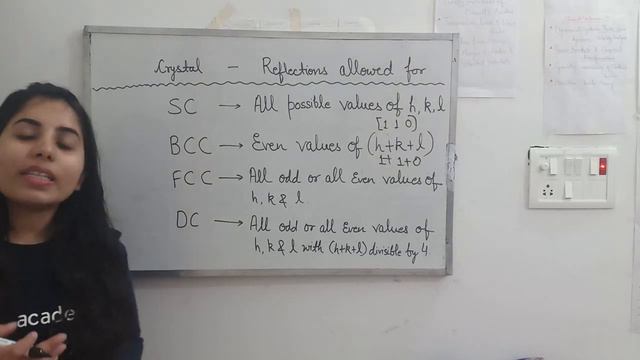 Crystal - Reflections allowed for
SC → All possible values of h, k, l
[1 1 0]
BCC → Even values of (h+k+l)
1+ 1+0
FCC → All odd or all Even values of
h, k & l
DC → All odd or all Even values of
h, k & l with (h+k+l) divisible by 4
acade